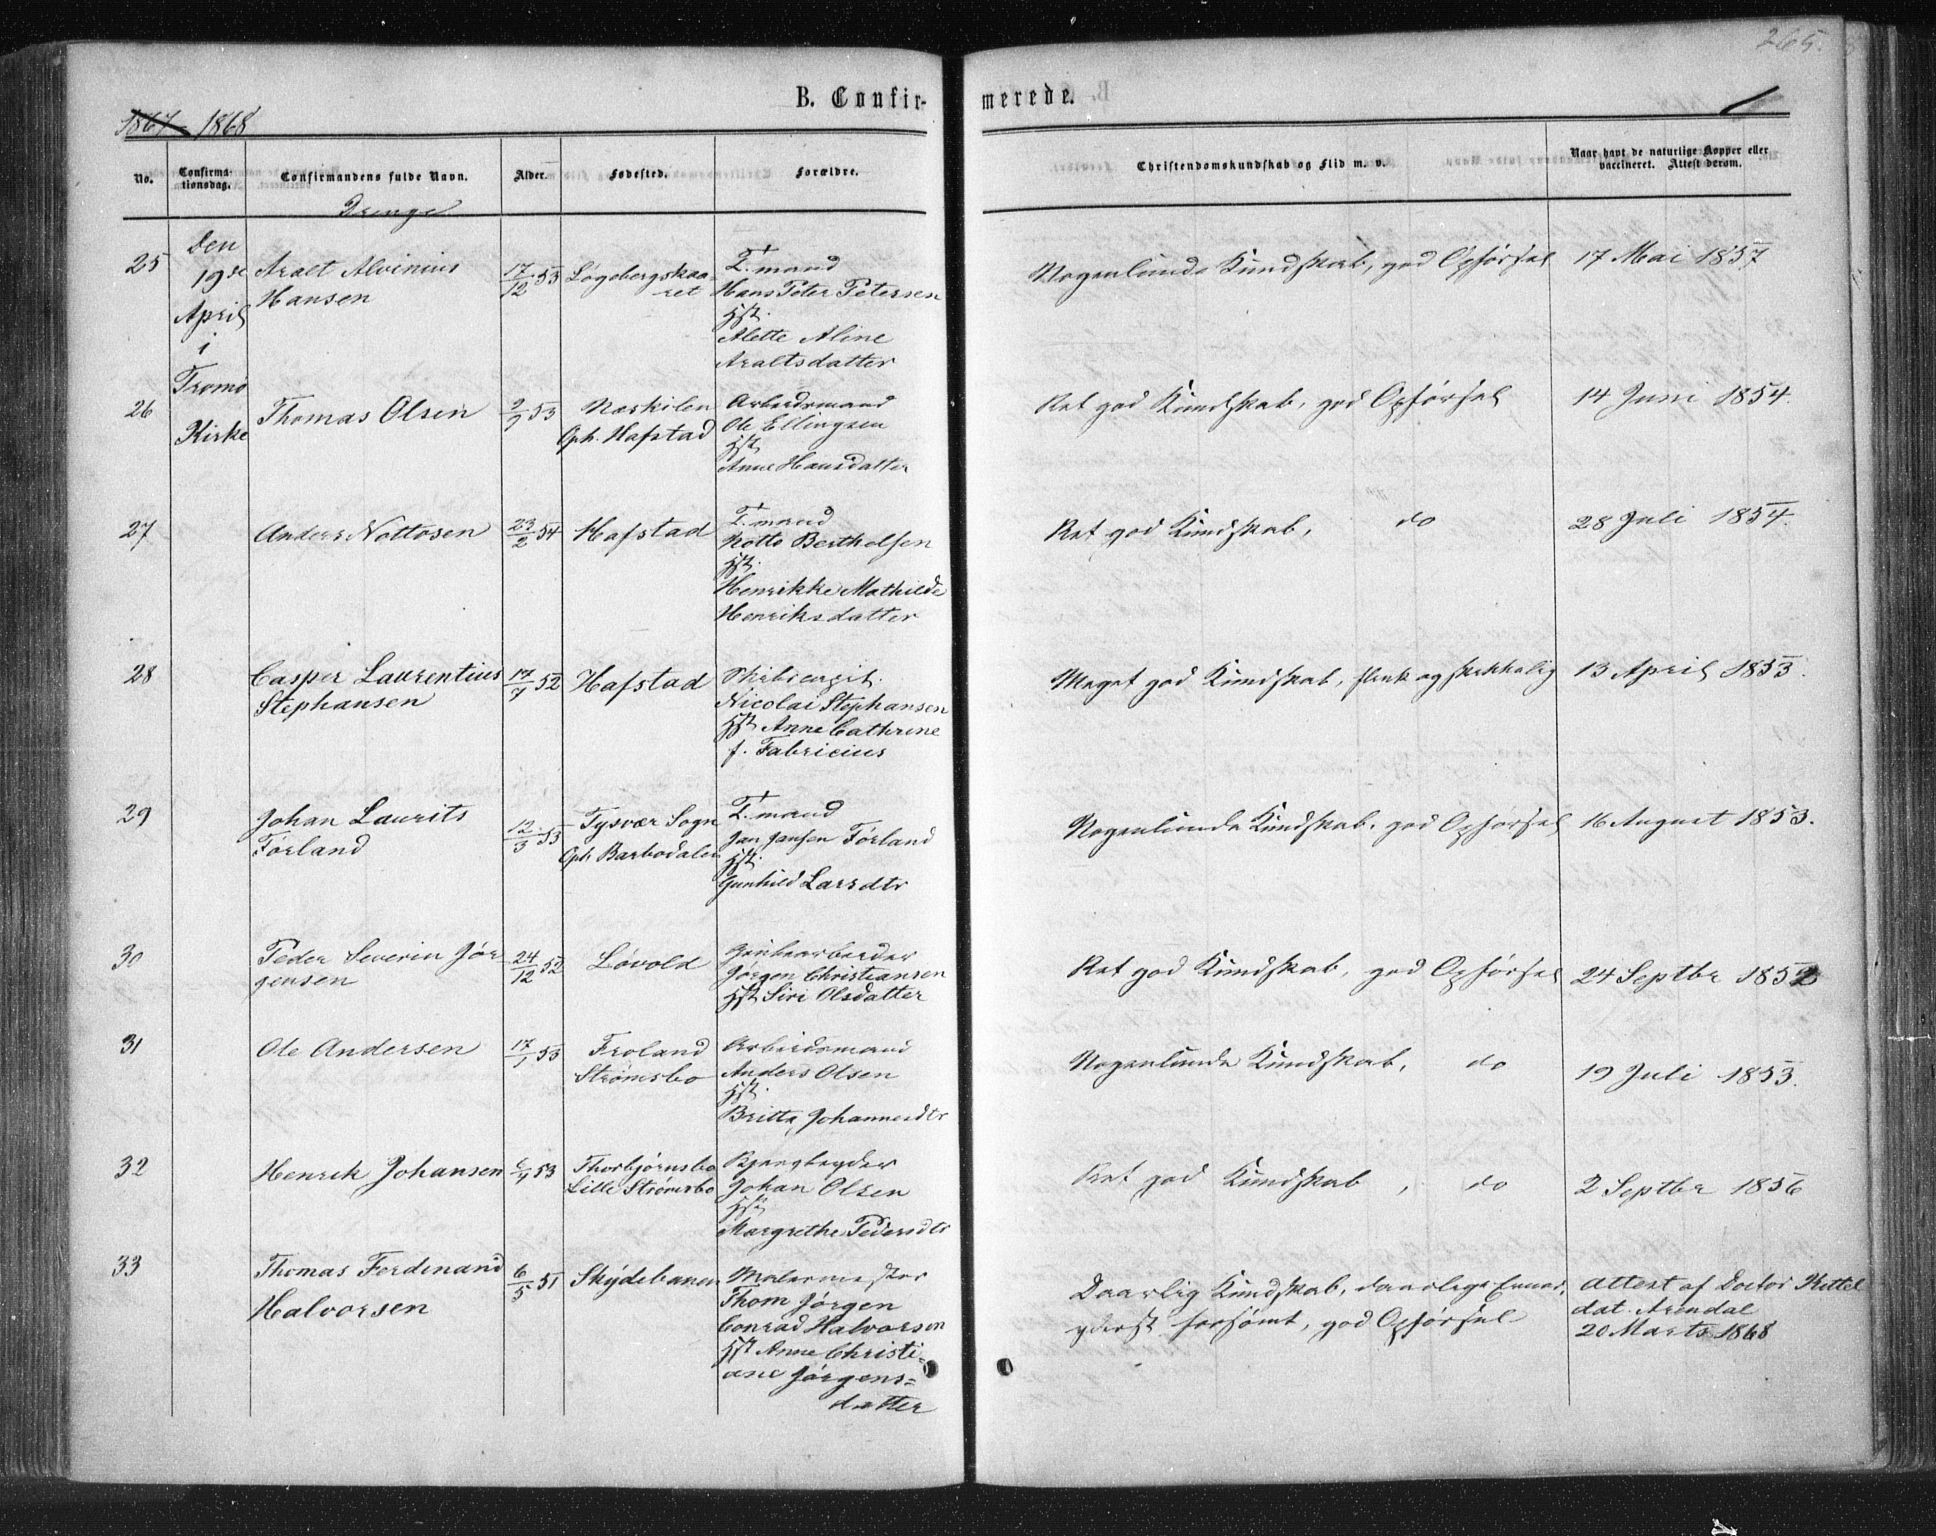 265.
B. Confirmerede.
1867 1868
No.
Confirmationsdag.
Confirmandens fulde Navn.
Alder.
Fødested.
Forældre.
Christendomskundskab og Flid m. v.
Naar havt de naturlige Kopper eller vaccineret. Attest derom.
Drenge
Den
19de
April
i
Tromø
Kirke
25
Aralt Alvinius
Hansen
17/12 53
Løgebergskaaret
T.mand
Hans Peter Petersen
Hst.
Alette Aline
Araltsdatter
Nogenlunde Kundskab, god Opførsel
17 Mai 1857
26
Thomas Olsen
2/9 53
Næskilen
Oph. Hafstad
Arbeidsmand
Ole Ellingsen
Hst.
Anne Hansdatter
Ret god Kundskab, god Opførsel
14 Juni 1854.
27
Anders Nottosen
23/2 54
Hafstad
T.mand
Notto Bertholsen
Hst.
Henrikke Mathilde
Henriksdatter
Ret god Kundskab, do
28 Juli 1854.
28
Casper Laurentius
Stephansen
17/7 52
Hafstad
Nicolai Stephansen
Hst Anne Cathrine
f. Fabricius
Meget god Kundskab, flink og skikkelig
13 April 1853.
29
Johan Laurits
Førland
12/3 53
Tysvær Sogn
Oph Barbodalen
T.mand
Jan Jansen Førland
Hst.
Gunhild Larsdtr
Nogenlunde Kundskab, god Opførsel
16 August 1853.
30
Peder Severin Jørgensen
24/12 52
Løvold
Jørgen Christiansen
Hst Siri Olsdatter
Ret god Kundskab, god Opførsel
24 Septbr 1852
31
Ole Andersen
17/1 53
Froland
Strømsbo
Arbeidsmand
Anders Olsen
Hst.
Britta Johannesdtr
Nogenlunde Kundskab, do
19 Juli 1853.
32
Henrik Johansen
53
Thorbjørnsbo
Lille Strømsbo
Johan Olsen
Hst.
Margrethe Pedersdtr
Ret god Kundskab, do
2 Septbr 1856
33
Thomas Ferdinand
Halvorsen
6/5 51
Skydebanen
Malermester
Thom Jørgen
Conrad Halvorsen
Hst Anne Christiane Jørgens=
datter
Daarlig Kundskab, daarlige Evner,
yderst forsømt, god Opførsel
Attest af Doctor Kittel
dat. Arendal
20 Marts 1868